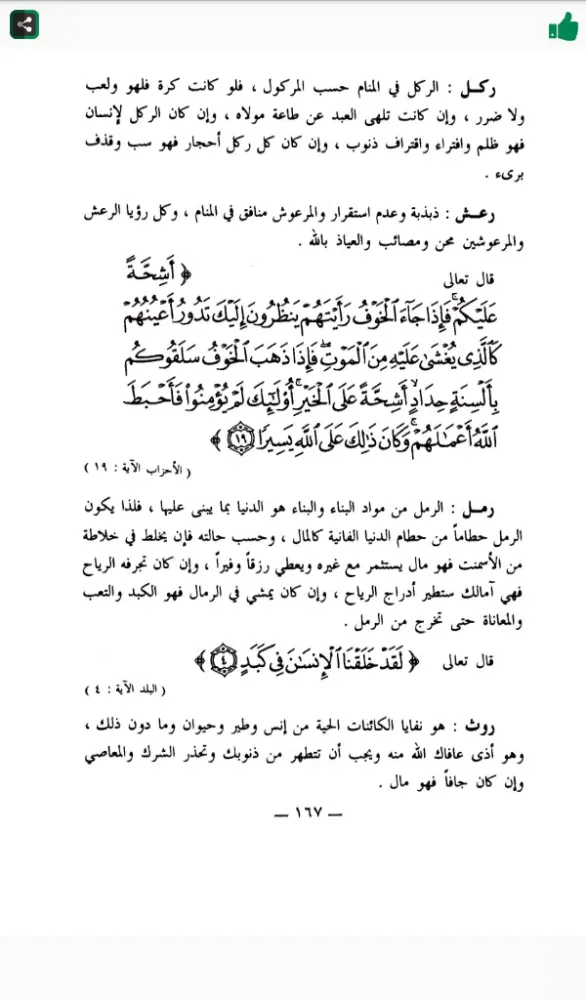 ركـل : الركل في المنام حسب المركول ، فلو كانت كرة فلهو ولعب
ولا ضرر ، وإن كانت تلهى العبد عن طاعة مولاه ، وإن كان الركل لإنسان
فهو ظلم وافتراء واقتراف ذنوب ، وإن كان كل ركل أحجار فهو سب وقذف
برىء .
رعـش : ذبذبة وعدم استقرار والمرعوش منافق في المنام ، وكل رؤيا الرعش
والمرعوشين محن ومصائب والعياذ بالله .
قال تعالى ﴿ أَشِحَّةً
عَلَيْكُمْ ۖ فَإِذَا جَآءَ ٱلْخَوْفُ رَأَيْتَهُمْ يَنظُرُونَ إِلَيْكَ تَدُورُ أَعْيُنُهُمْ
كَٱلَّذِى يُغْشَىٰ عَلَيْهِ مِنَ ٱلْمَوْتِ ۖ فَإِذَا ذَهَبَ ٱلْخَوْفُ سَلَقُوكُم
بِأَلْسِنَةٍ حِدَادٍ أَشِحَّةً عَلَى ٱلْخَيْرِ ۚ أُو۟لَٰٓئِكَ لَمْ يُؤْمِنُوا۟ فَأَحْبَطَ
ٱللَّهُ أَعْمَٰلَهُمْ ۚ وَكَانَ ذَٰلِكَ عَلَى ٱللَّهِ يَسِيرًا ١٩ ﴾
( الأحزاب الآية : ١٩ )
رمـل : الرمل من مواد البناء والبناء هو الدنيا بما يبنى عليها ، فلذا يكون
الرمل حطاماً من حطام الدنيا الفانية كالمال ، وحسب حالته فإن يخلط في خلاطة
من الأسمنت فهو مال يستثمر مع غيره ويعطي رزقاً وفيراً ، وإن كان تجرفه الرياح
فهي آمالك ستطير أدراج الرياح ، وإن كان يمشي في الرمال فهو الكبد والتعب
والمعاناة حتى تخرج من الرمل .
قال تعالى ﴿ لَقَدْ خَلَقْنَا ٱلْإِنسَٰنَ فِى كَبَدٍ ٤ ﴾
( البلد الآية : ٤ )
روث : هو نفايا الكائنات الحية من إنس وطير وحيوان وما دون ذلك ،
وهو أذى عافاك الله منه ويجب أن تتطهر من ذنوبك وتحذر الشرك والمعاصي
وإن كان جافاً فهو مال .
— ١٦٧ —